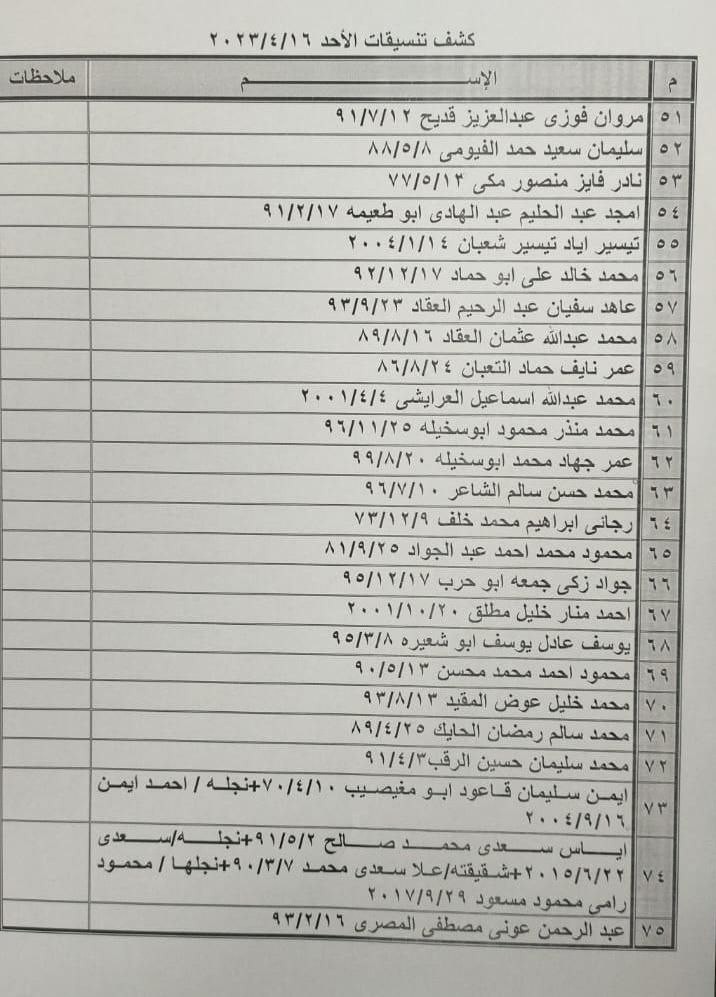 كشف تنسيقات الأحد ٢٠٢٣/٤/١٦
م الإســـم ملاحظات
٥١ مروان فوزى عبدالعزيز قديح ٩١/٧/١٢
٥٢ سليمان سعيد حمد الفيومى ٨٨/٥/٨
٥٣ نادر فايز منصور مكى ٧٧/٥/١٣
٥٤ امجد عبد الحليم عبد الهادى ابو طعيمه ٩١/٢/١٧
٥٥ تيسير اياد تيسير شعبان ٢٠٠٤/١/١٤
٥٦ محمد خالد على ابو حماد ٩٢/١٢/١٧
٥٧ عاهد سفيان عبد الرحيم العقاد ٩٣/٩/٢٣
٥٨ محمد عبدالله عثمان العقاد ٨٩/٨/١٦
٥٩ عمر نايف حماد التعبان ٨٦/٨/٢٤
٦٠ محمد عبدالله اسماعيل العرايشى ٢٠٠١/٤/٤
٦١ محمد منذر محمود ابوسخيله ٩٦/١١/٢٥
٦٢ عمر جهاد محمد ابوسخيله ٩٩/٨/٢٠
٦٣ محمد حسن سالم الشاعر ٩٦/٧/١٠
٦٤ رجائى ابراهيم محمد خلف ٧٣/١٢/٩
٦٥ محمود محمد احمد عبد الجواد ٨١/٩/٢٥
٦٦ جواد زكى جمعه ابو حرب ٩٥/١٢/١٧
٦٧ احمد منار خليل مطلق ٢٠٠١/١٠/٢٠
٦٨ يوسف عادل يوسف ابو شعيره ٩٥/٣/٨
٦٩ محمود احمد محمد محسن ٩٠/٥/١٣
٧٠ محمد خليل عوض المقيد ٩٣/٨/١٣
٧١ محمد سالم رمضان الحايك ٨٩/٤/٢٥
٧٢ محمد سليمان حسين الرقب٩١/٤/٣
٧٣ ايمن سليمان قاعود ابو مغيصيب ٧٠/٤/١٠+نجله / احمد ايمن
٢٠٠٤/٩/١٦
٧٤ اياس سعدى محمد صالح ٩١/٥/٢+نجله/سعدى
٢٠١٥/٦/٢٢+شقيقته/علا سعدى محمد ٩٠/٣/٧+نجلها / محمود
رامى محمود مسعود ٢٠١٧/٩/٢٩
٧٥ عبد الرحمن عونى مصطفى المصرى ٩٣/٢/١٦